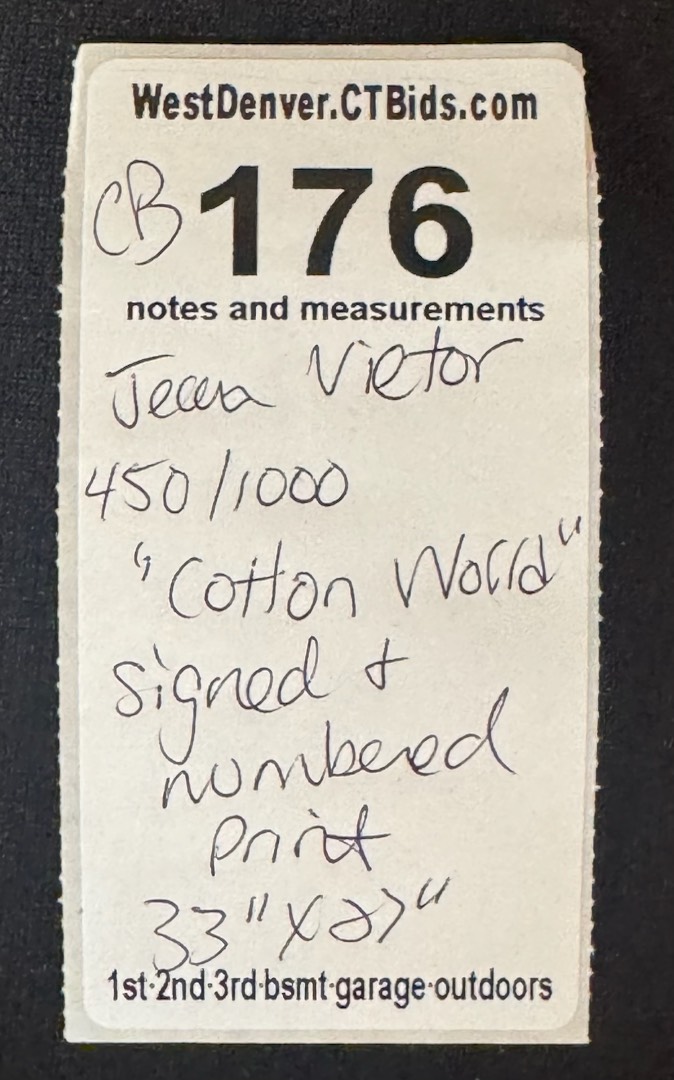 WestDenver.CTBids.com
CB 176
notes and measurements
Jeana Vietor
450/1000
"Cotton World"
signed +
numbered
print
33" X 27"
1st·2nd·3rd·bsmt·garage·outdoors